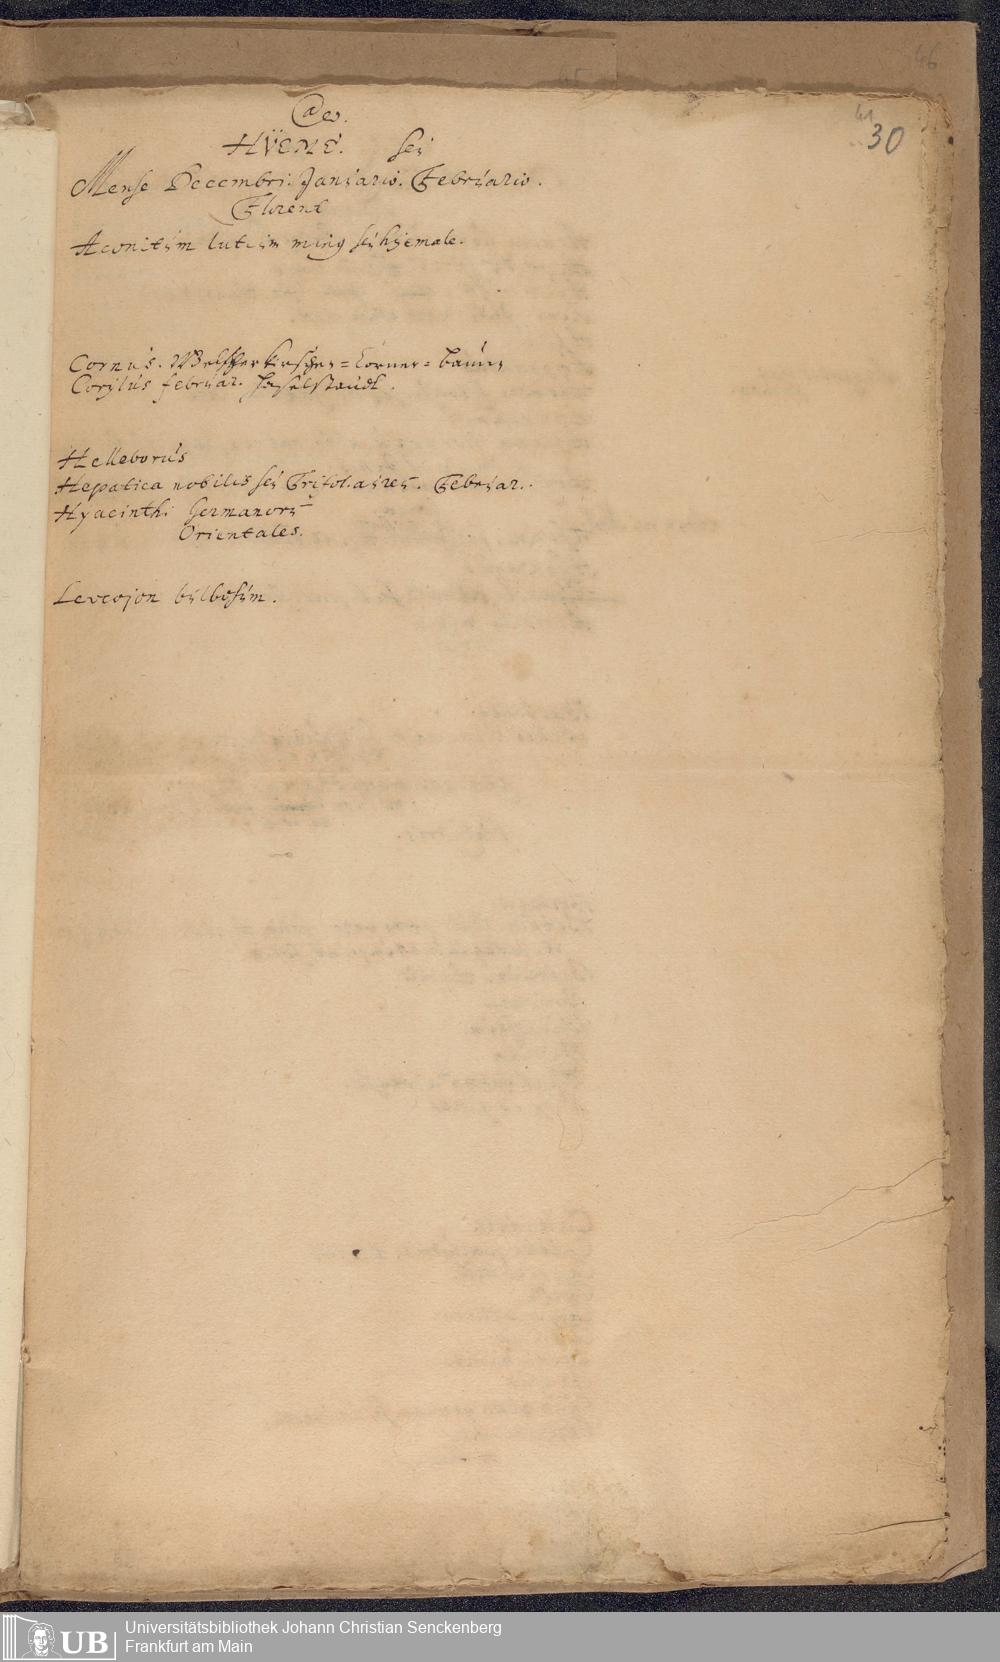 46
41
30
@ eo.
HÿEME. seu
Mense Decembri. Januario. Februario.
Florent
Aconitum luteum minus seu hyemale.
Cornus. Welscherkirschen=Körner=baum
Corylus februar. haselstaudt.
Helleborus
Hepatica nobilis seu Trifol. aureū. Februar.
Hyacinthi Germanorū
Orientales.
Leucojon bulbosum.
UB Universitätsbibliothek Johann Christian Senckenberg
Frankfurt am Main